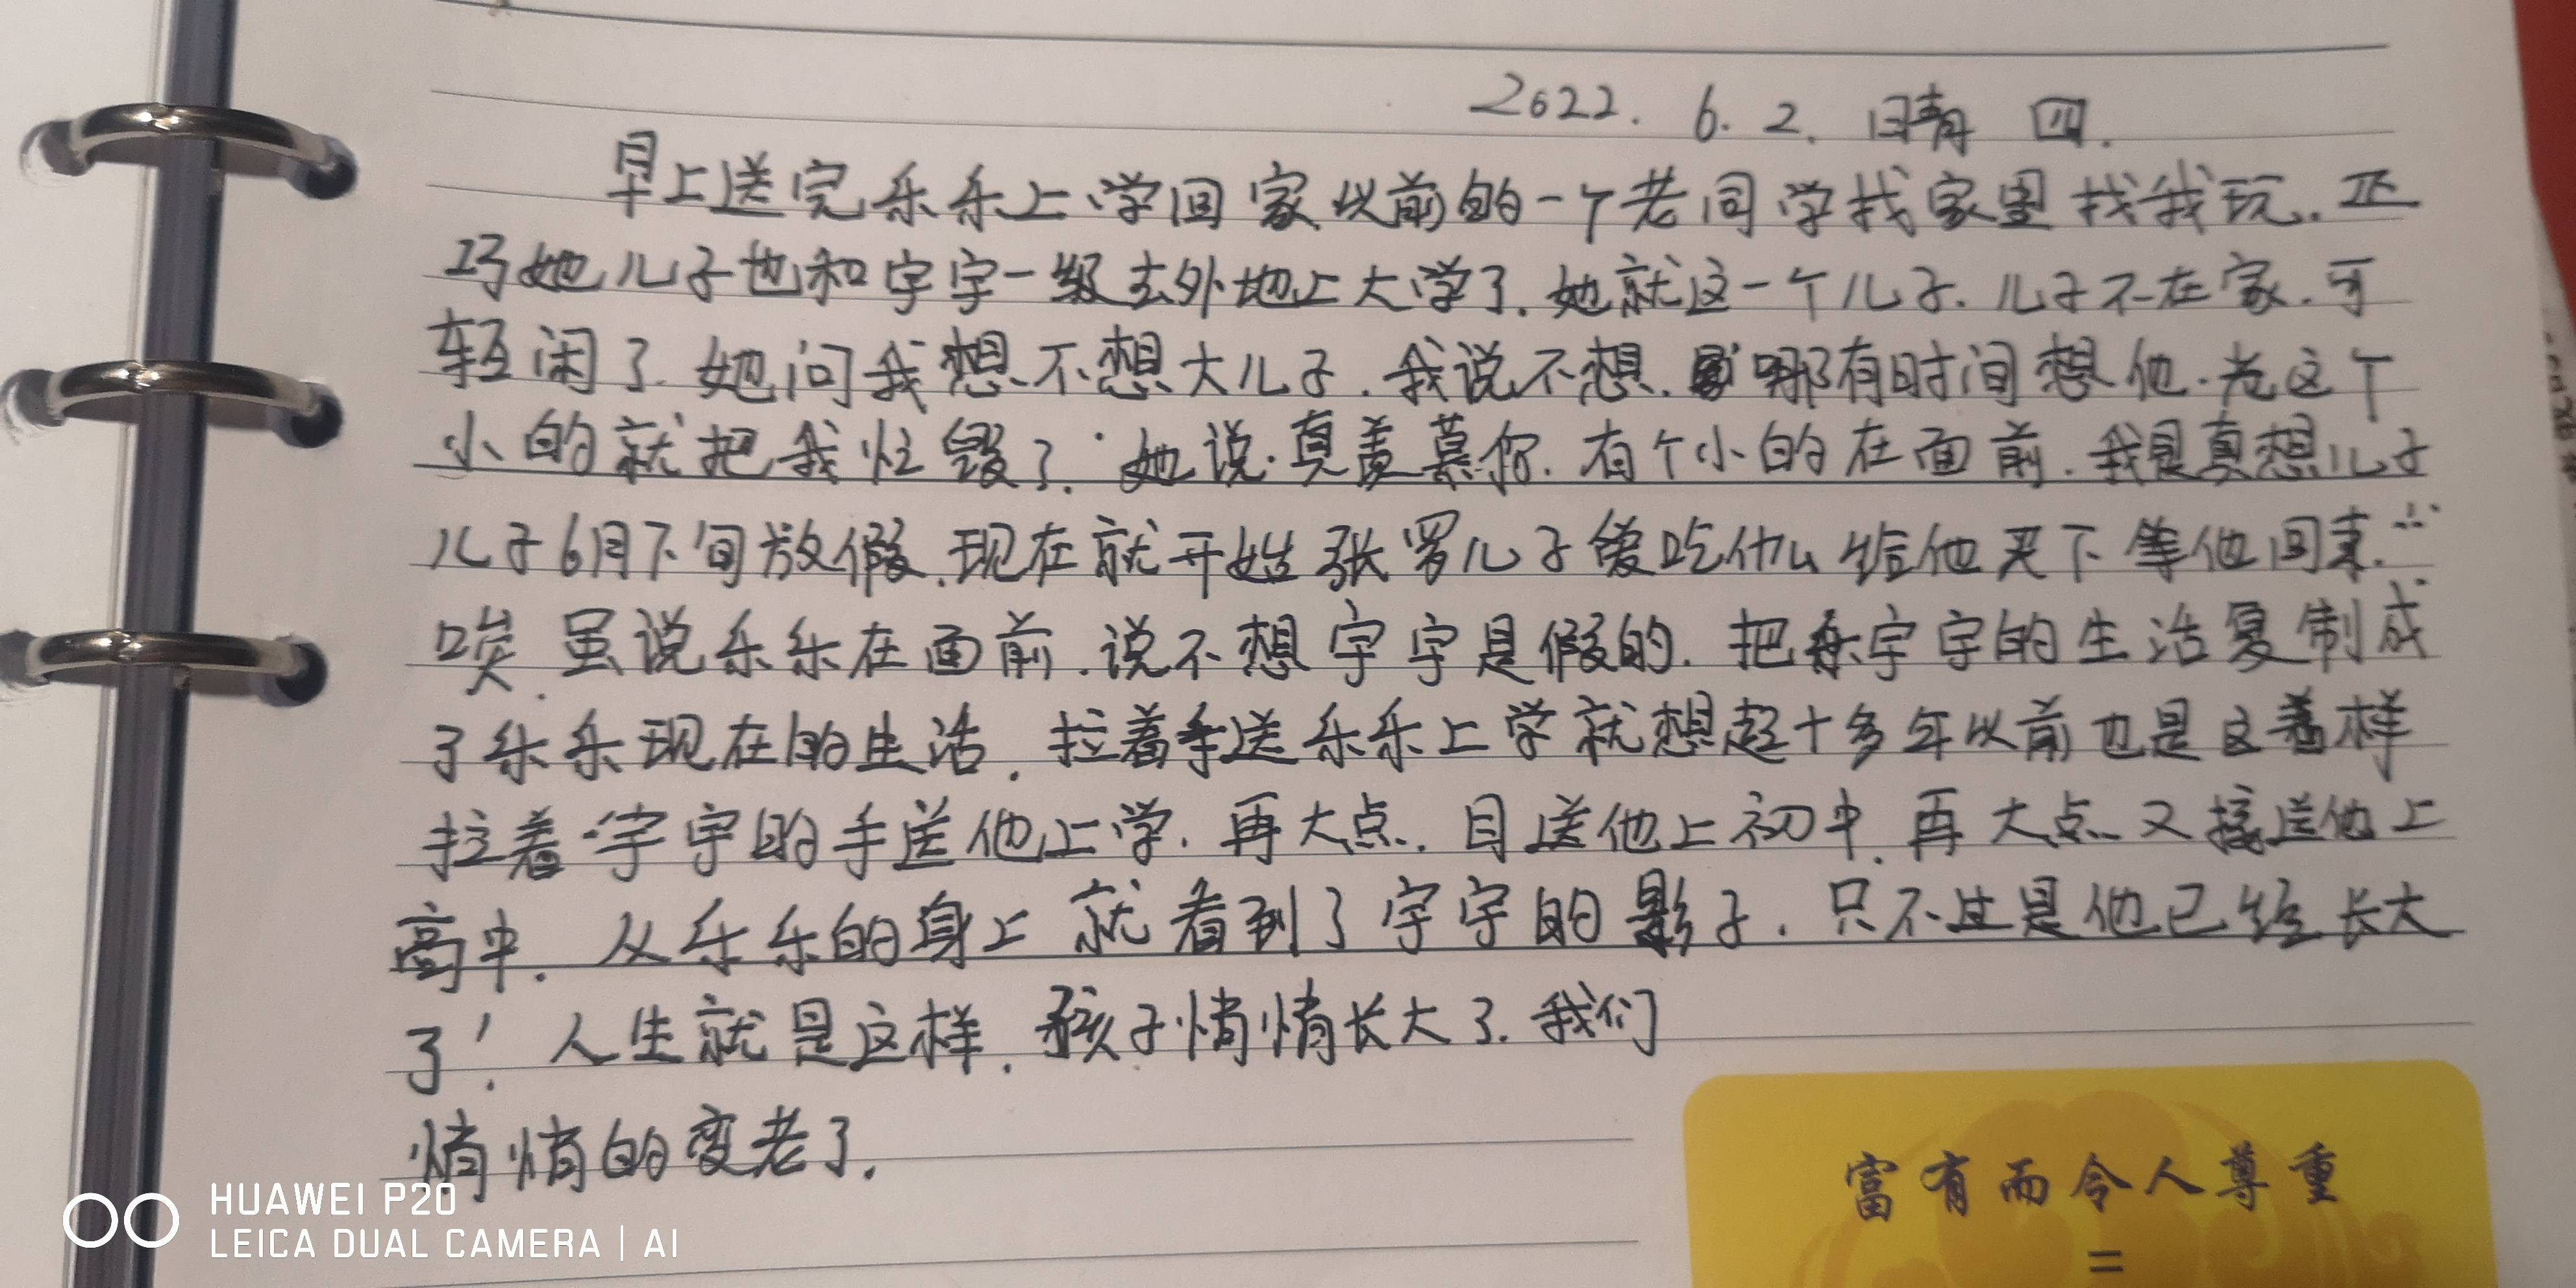 2022. 6. 2. 晴 四.
早上送完乐乐上学回家以前的一个老同学找家里找我玩.正
巧她儿子也和宇宇一级去外地上大学了.她就这一个儿子.儿子不在家.可
轻闲了.她问我想不想大儿子.我说不想.哪有时间想他.光这个
小的就把我忙毁了.她说.真羡慕你.有个小的在面前.我是真想儿子
儿子6月下旬放假.现在就开始张罗儿子爱吃什么给他买下等他回来.…
唉.虽说乐乐在面前.说不想宇宇是假的.把宇宇的生活复制成
了乐乐现在的生活.拉着手送乐乐上学就想起十多年以前也是这着样
拉着宇宇的手送他上学.再大点.目送他上初中.再大点又接送他上
高中.从乐乐的身上就看到了宇宇的影子.只不过是他已经长大
了!人生就是这样.孩子悄悄长大了.我们
悄悄的变老了.
富有而令人尊重
=
HUAWEI P20
LEICA DUAL CAMERA | AI